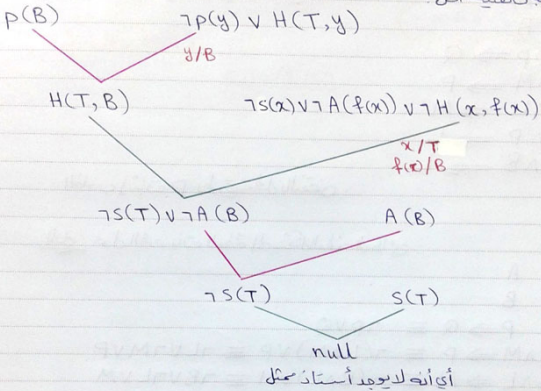 P(B)    ¬P(y) ∨ H(T,y)
y/B
H(T,B)    ¬S(x)∨¬A(f(x))∨¬H(x,f(x))
x/T
f(x)/B
¬S(T)∨¬A(B)    A(B)
¬S(T)    S(T)
null
أي أنه لا يوجد أستاذ ممثل